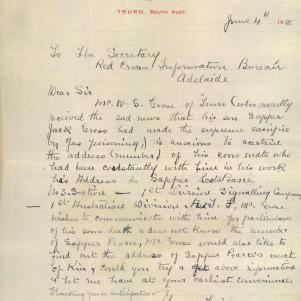 TRURO, SOUTH AUST.
June 4th 1918
To The Secretary
Red Cross Information Bureau
Adelaide
Dear Sir
Mr. W. C. Grose, of Truro (who recently
recived the sad news that his son Sapper
Jack Grose had made the supreme sacrifice
by Gas poisoning) is anxious to acertain
the address (number) of his sons mate who
had been constantly with him in his work
his address is Sapper Pearce
No 3. Section — 1st Division Signalling Company
— 1st Australian Division A.I.F. Mr. Grose
wishes to communicate with him for particulars
of his sons death & does not know the number
of Sapper Pearce, Mr. Grose would also like to
find out the address of Sapper Pearce's next
of Kin & could you try & get above information
& let me have at your earliest convenience.
Thanking you in anticipation